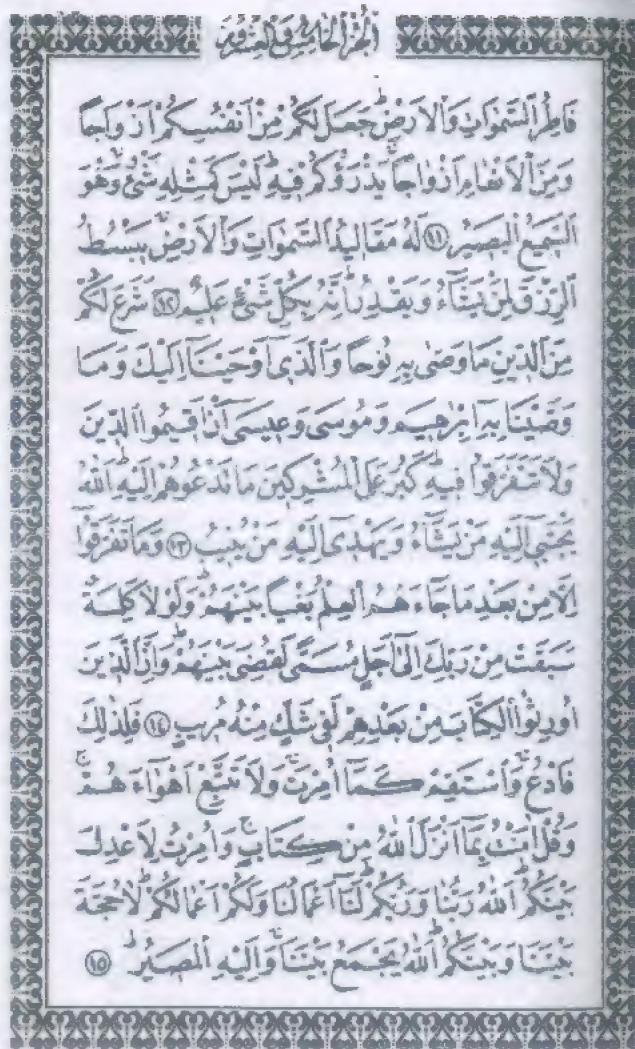 الجزء الخامس والعشرون
فَاطِرُ السَّمٰوَاتِ وَالْاَرْضِۜ جَعَلَ لَكُمْ مِنْ اَنْفُسِكُمْ اَزْوَاجًا
وَمِنَ الْاَنْعَامِ اَزْوَاجًاۚ يَذْرَؤُكُمْ ف۪يهِۜ لَيْسَ كَمِثْلِه۪ شَيْءٌۚ وَهُوَ
السَّم۪يعُ الْبَص۪يرُ ﴿١١﴾ لَهُ مَقَال۪يدُ السَّمٰوَاتِ وَالْاَرْضِۚ يَبْسُطُ
الرِّزْقَ لِمَنْ يَشَٓاءُ وَيَقْدِرُۜ اِنَّهُ بِكُلِّ شَيْءٍ عَل۪يمٌ ﴿١٢﴾ شَرَعَ لَكُمْ
مِنَ الدّ۪ينِ مَا وَصّٰى بِه۪ نُوحًا وَالَّذ۪ٓي اَوْحَيْنَٓا اِلَيْكَ وَمَا
وَصَّيْنَا بِه۪ٓ اِبْرٰه۪يمَ وَمُوسٰى وَع۪يسٰٓى اَنْ اَق۪يمُوا الدّ۪ينَ
وَلَا تَتَفَرَّقُوا ف۪يهِۜ كَبُرَ عَلَى الْمُشْرِك۪ينَ مَا تَدْعُوهُمْ اِلَيْهِۜ اَللّٰهُ
يَجْتَب۪ٓي اِلَيْهِ مَنْ يَشَٓاءُ وَيَهْد۪ٓي اِلَيْهِ مَنْ يُن۪يبُ ﴿١٣﴾ وَمَا تَفَرَّقُٓوا
اِلَّا مِنْ بَعْدِ مَا جَٓاءَهُمُ الْعِلْمُ بَغْيًا بَيْنَهُمْۜ وَلَوْلَا كَلِمَةٌ
سَبَقَتْ مِنْ رَبِّكَ اِلٰٓى اَجَلٍ مُسَمًّى لَقُضِيَ بَيْنَهُمْۜ وَاِنَّ الَّذ۪ينَ
اُو۫رِثُوا الْكِتَابَ مِنْ بَعْدِهِمْ لَف۪ي شَكٍّ مِنْهُ مُر۪يبٍ ﴿١٤﴾ فَلِذٰلِكَ
فَادْعُۚ وَاسْتَقِمْ كَمَٓا اُمِرْتَۚ وَلَا تَتَّبِعْ اَهْوَٓاءَهُمْۚ
وَقُلْ اٰمَنْتُ بِمَٓا اَنْزَلَ اللّٰهُ مِنْ كِتَابٍۚ وَاُمِرْتُ لِاَعْدِلَ
بَيْنَكُمْۜ اَللّٰهُ رَبُّنَا وَرَبُّكُمْۜ لَنَٓا اَعْمَالُنَا وَلَكُمْ اَعْمَالُكُمْۜ لَا حُجَّةَ
بَيْنَنَا وَبَيْنَكُمْۜ اَللّٰهُ يَجْمَعُ بَيْنَنَاۚ وَاِلَيْهِ الْمَص۪يرُۜ ﴿١٥﴾